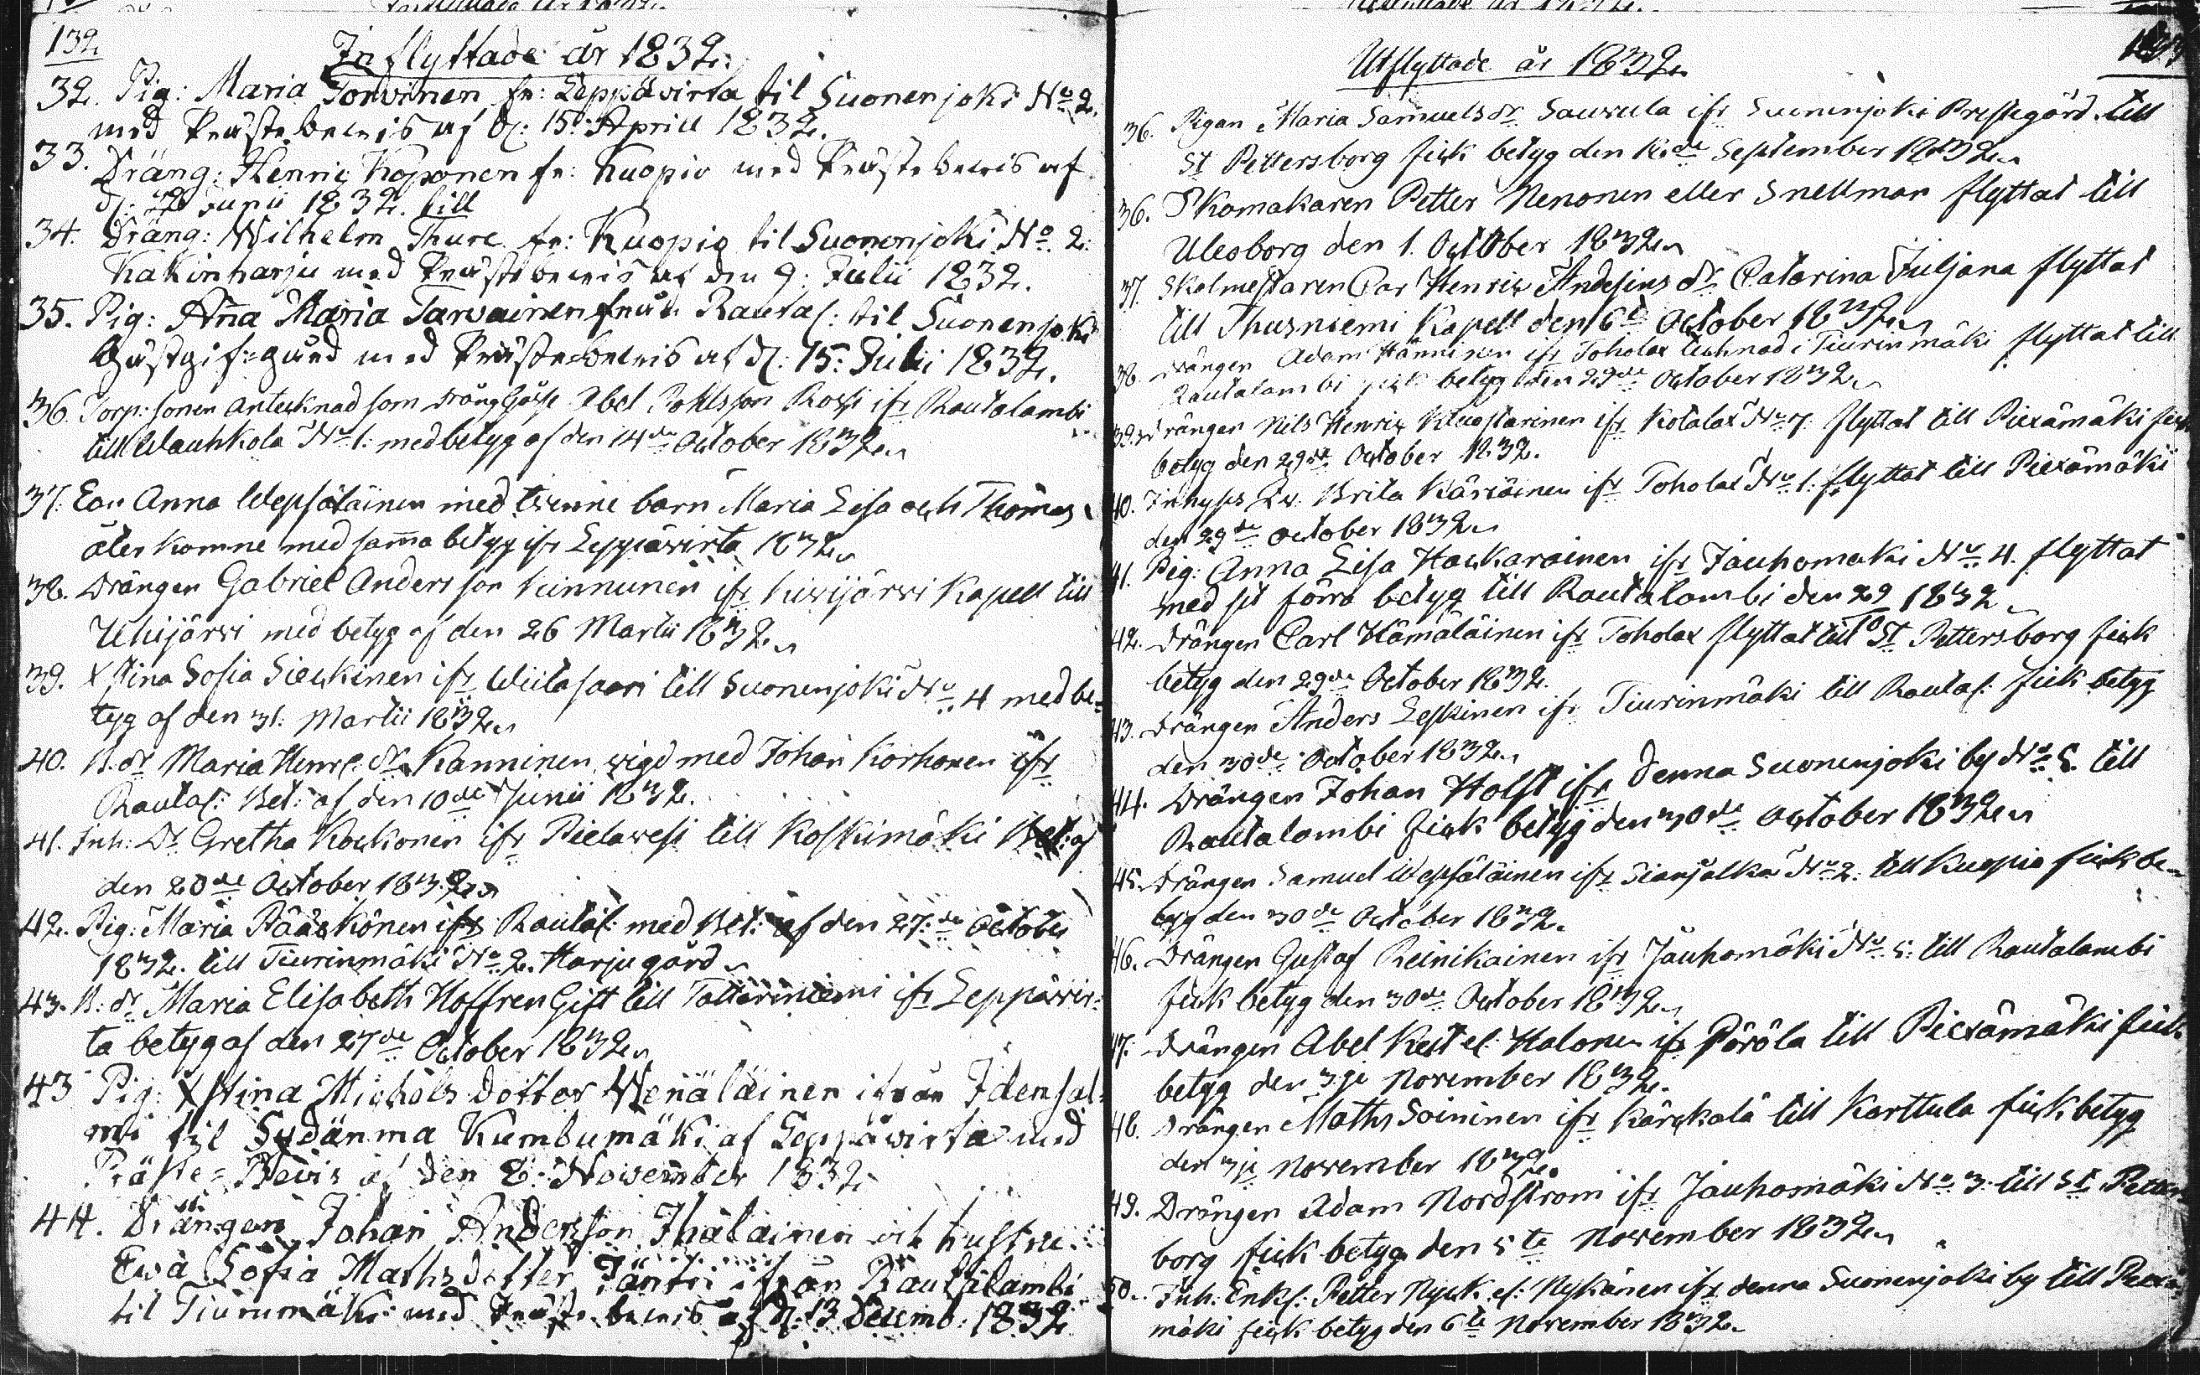 132.
Inflyttade år 1832.
32. Pig: Maria Torvinen fr: Leppävirta til Suonenjoki No 2.
med Prästebewis af d: 15 Aprill 1832.
33. Dräng: Henric Koponen fr: Kuopio med Prästebewis af
d: Junii 1832. till
34. Dräng: Wilhelm Thure fr: Kuopio til Suonenjoki No 2:
Kakinharju med Prästebewis af den 9: Julii 1832.
35. Pig: Anna Maria Tarvainen från Rautal: til Suonenjoki
Gästgifvegård med Prästebewis af d: 15: Julii 1832.
36. Torp: sonen antecknad som dräng Abel Pohlsson ifr Rautalambi
till Wauhkola No 1: med betyg af den 14de October 1832.
37. Enk: Anna Wepsäläinen med tvenne barn Maria Lisa och Thomas
återkomne med samma betyg ifr Leppävirta 1832.
38. Drängen Gabriel Andersson Kinnunen ifr Kivijärvi Kapell till
med betyg af den 26 Martii 1832.
39. Xstina Sofia Sieckinen ifr Wiitasaari till Suonenjoki No 4 med be-
tyg af den 31. Martii 1832.
40. B. dr Maria Henr: dr Kanninen vigd med Johan Korhonen ifr
Rautal: Bet: af den 10de Junii 1832.
41. Inh: Dr Gretha Kockonen ifr Pielavesi till Koskimäki Bet: af
den 20de October 1832.
42. Pig: Maria Pääskönen ifr Rautal: med Bet: af den 27:de October
1832. till Tiurinmäki No 2. Harju gård
43. B: dr Maria Elisabeth Hoffren Gift till Tallariniemi ifr Leppävir-
ta betyg af den 27de October 1832.
43 Pig: Xstina Michels Dotter Wenäläinen ifrån Idensal-
mi til Sydänma Kumbumäki af Leppävirta med
Präste-Bevis af den 8: November 1832.
44. Drängen Johan Andersson Ihalainen och hustru
Ewa Sofia Mathsdotter Jäntti ifrån Rautalambi
til Tiurinmäki med Prästebewis af d: 13 Decemb: 1832
Utflyttade år 1832.
36. Pigan Maria Samuels dr Saurula ifr Suonenjoki Prestegård till
St Pettersborg fick betyg den September 1832.
36. Skomakaren Petter Nenonen eller Snellman flyttat till
Uleoborg den 1. October 1832.
37. Skolmestaren Carl Henric dr Catarina Juljana flyttat
till Thusniemi Kapell den 6te October 1832.
38. Drängen Adam Hänninen ifr Toholax i Tiurinmäki flyttat till
Rautalambi fick betyg den 29de October 1832.
39. Drängen Nils Henric ifr Kotalax No 7. flyttat till Piexämäki fick
betyg den 29de October 1832.
40. Inhyses Brita Kärkäinen ifr Toholax No 1: flyttat till Piexämäki
den 29de October 1832.
41. Pig: Anna Lisa Hackarainen ifr Jauhomäki No 4. flyttat
med sit förra betyg till Rautalambi den 29/10 1832
42. Drängen Carl Hämäläinen ifr Toholax flyttat till St Pettersborg fick
betyg den 29de October 1832.
43. Drängen Anders Leskinen ifr Tiurinmäki till Rautal: fick betyg
den 30de October 1832.
44. Drängen Johan Holst ifr denna Suonenjoki by No 5. till
Rautalambi fick betyg den 30de October 1832.
45. Drängen Samuel Wepsäläinen ifr Sianjalka No 2. till Kuopio fick be-
tyg den 30de October 1832.
46. Drängen Gustaf Reinikainen ifr Jauhomäki No 5: till Rautalambi
fick betyg den 30de October 1832.
47. Drängen Abel Halonen ifr Pörölä till Piexämäki fick
betyg den 3je November 1832.
48. Drängen Maths Soininen ifr Kärckälä till Karttula fick betyg
den 3je November 1832.
49. Drängen Adam Nordström ifr Jauhomäki No 3. till St Petters
borg fick betyg den 5te November 1832.
50. Inh: Enkl: Petter Nyck el: Nykänen ifr denna Suonenjoki by till Piexä-
mäki fick betyg den 6te November 1832.